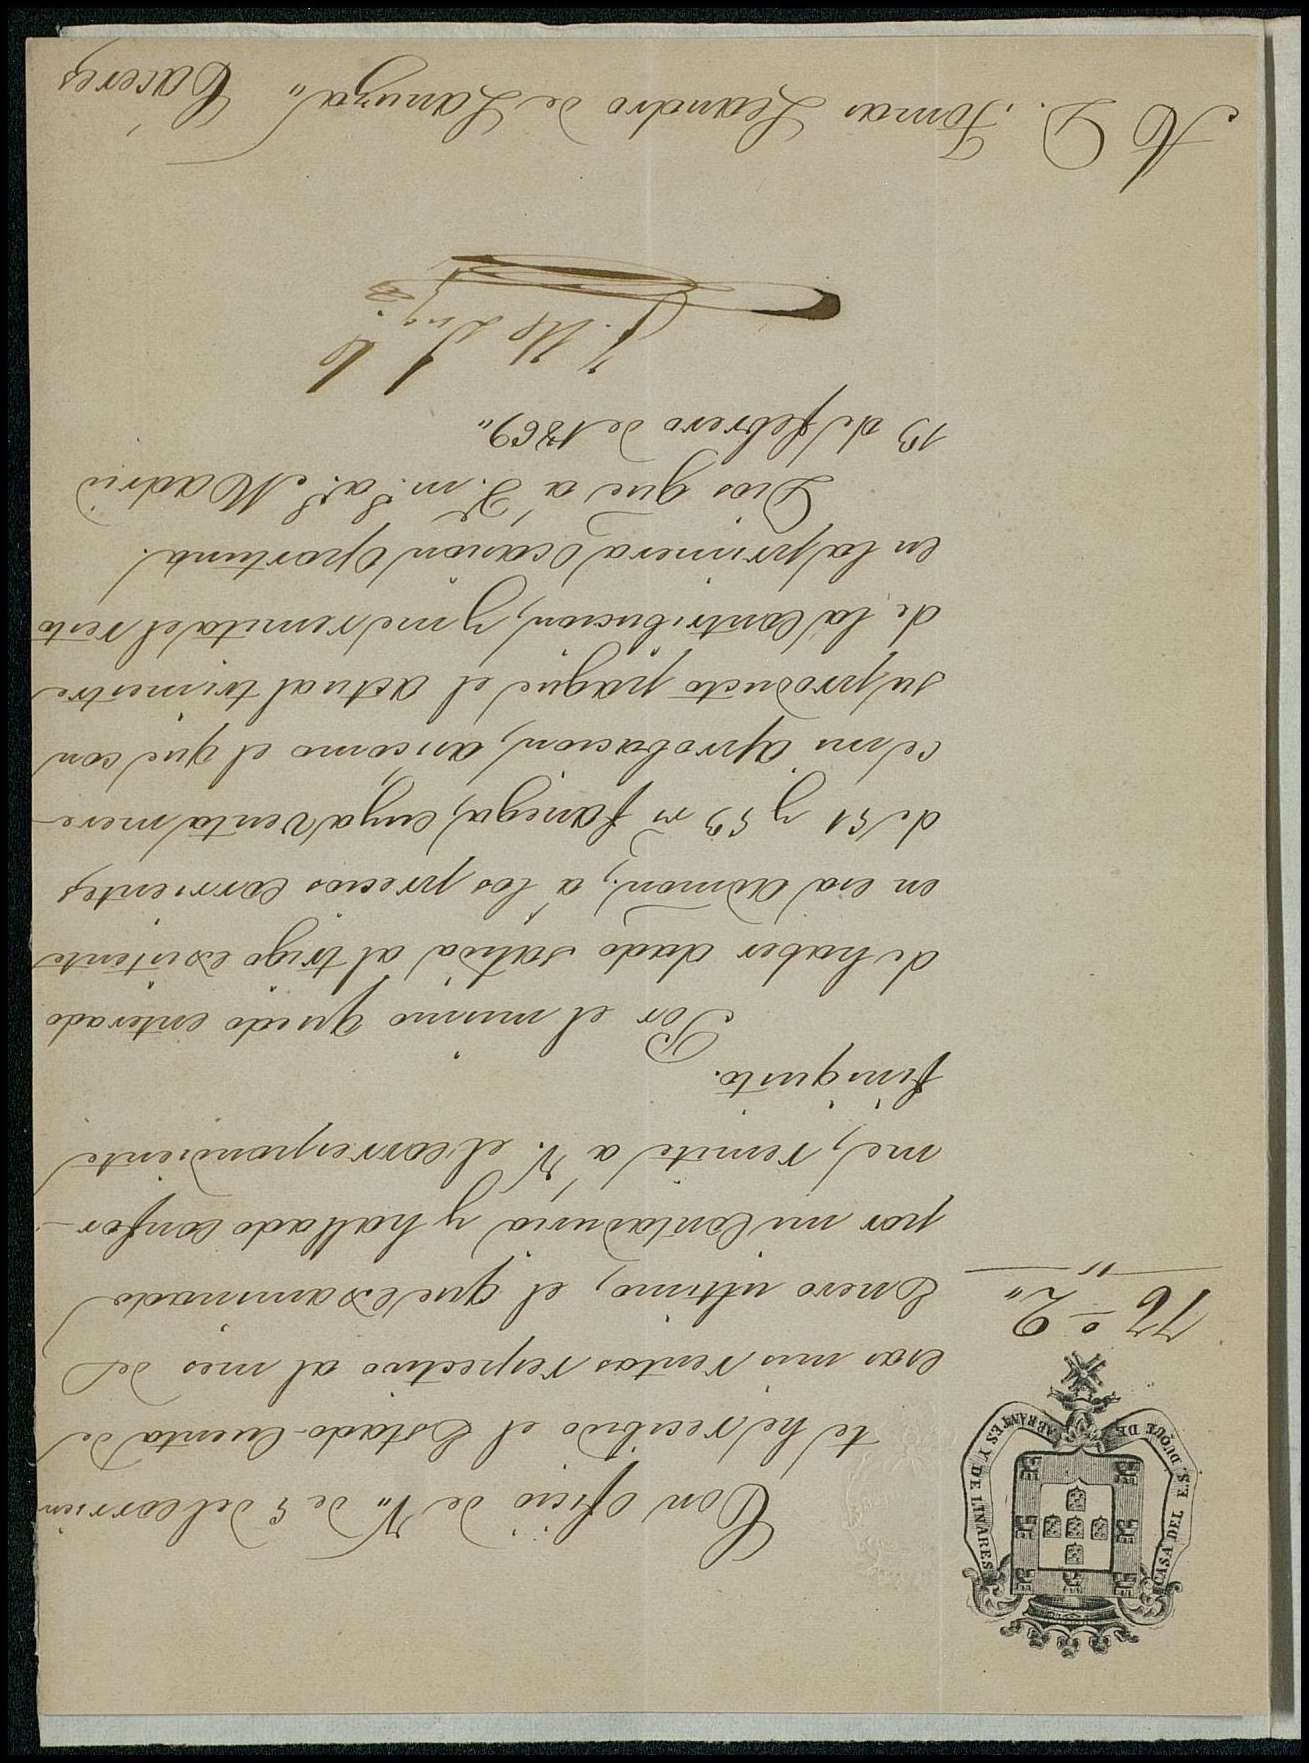 CASA DEL E.S. DUQUE DE ABRANTES Y DE LINARES
Con oficio de V. de 5 del corrien
te he recibido el Estado-Cuenta de
esas mis rentas respectivo al mes de
Enero ultimo, el que examinado
por mi Contaduria y hallado confor-
me, remite á V. el correspondiente
finiquito.
Por el mismo quedo enterado
de haber dado salida al trigo existente
en esa admon, á los precios corrientes
de 51 y 53 rs fanega, cuya venta mere-
ce mi aprobacion, asi como el que con
su producto pague el actual trimestre
de la Contribucion, y me remita el resto
en la primera ocasion oportuna.
Dios gue á V. ms as Madrid
13 de febrero de 1869,,
A D. Tomas Leandro de Lanuza,, Cáceres